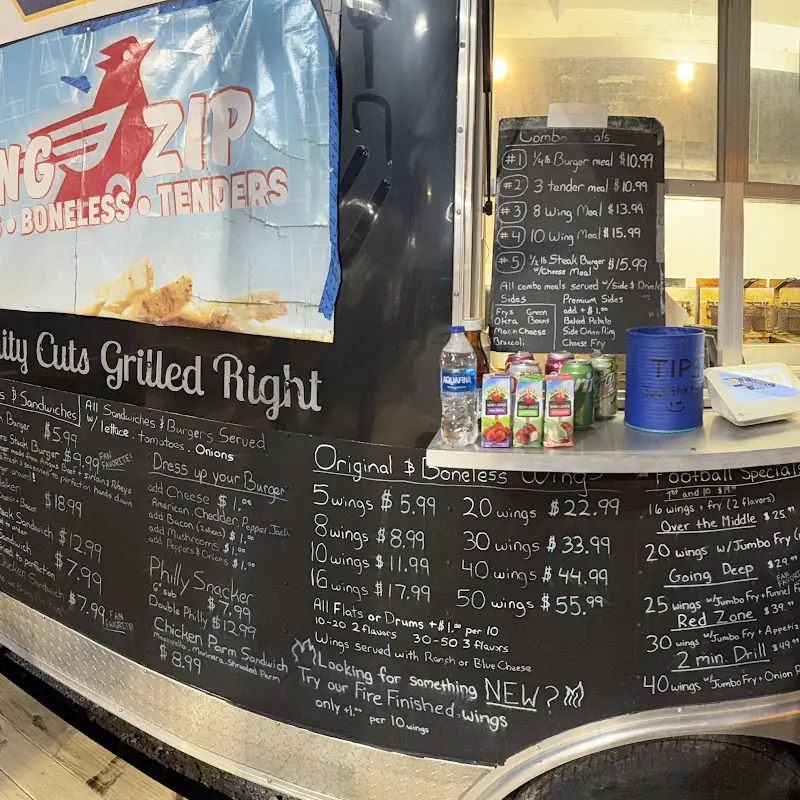 NG ZIP
• BONELESS • TENDERS
ity Cuts Grilled Right
Combo
#1 1/4 lb Burger meal $10.99
#2 3 tender meal $10.99
#3 8 Wing Meal $13.99
#4 10 Wing Meal $15.99
#5 1/2 lb Steak Burger $15.99
w/Cheese Meal
All combo meals served w/ Side & Drink
Sides
Frys Green
Okra Beans
Mac n Cheese
Broccoli
Premium Sides
add + $1.00
Baked Potato
Side Onion Ring
Cheese Fry
AQUAFINA
TIPS
& Sandwiches
Burger $5.99
Steak Burger $9.99 FAN FAVORITE!
$18.99
Sandwich $12.99
Sandwich $7.99
Chicken Sandwich $7.99 FAN FAVORITE
All Sandwiches & Burgers Served
w/ lettuce, tomatoes, Onions
Dress up your Burger
add Cheese $1.00
American, Chedder, Pepper Jack
add Bacon (2 slices) $1.00
add Mushrooms $1.00
add Peppers & Onions $1.00
Philly Snacker
6" sub $7.99
Double Philly $12.99
Chicken Parm Sandwich
Mozzarella, Marinara, Shredded Parm
$8.99
Original & Boneless Wings
5 wings $5.99
8 wings $8.99
10 wings $11.99
16 wings $17.99
20 wings $22.99
30 wings $33.99
40 wings $44.99
50 wings $55.99
All Flats or Drums + $1.00 per 10
10-20 2 flavors 30-50 3 flavors
Wings served with Ranch or Blue Cheese
Looking for something NEW?
Try our Fire Finished wings
only +1.00 per 10 wings
Football Specials
1st and 10 $19.99
16 wings + fry (2 flavors)
Over the Middle $25.
20 wings w/Jumbo Fry
Going Deep $29.
25 wings w/Jumbo Fry + Funnel F
Red Zone $39.
30 wings w/Jumbo Fry + Appetiz
2 min. Drill $49.
40 wings w/Jumbo Fry + Onion R